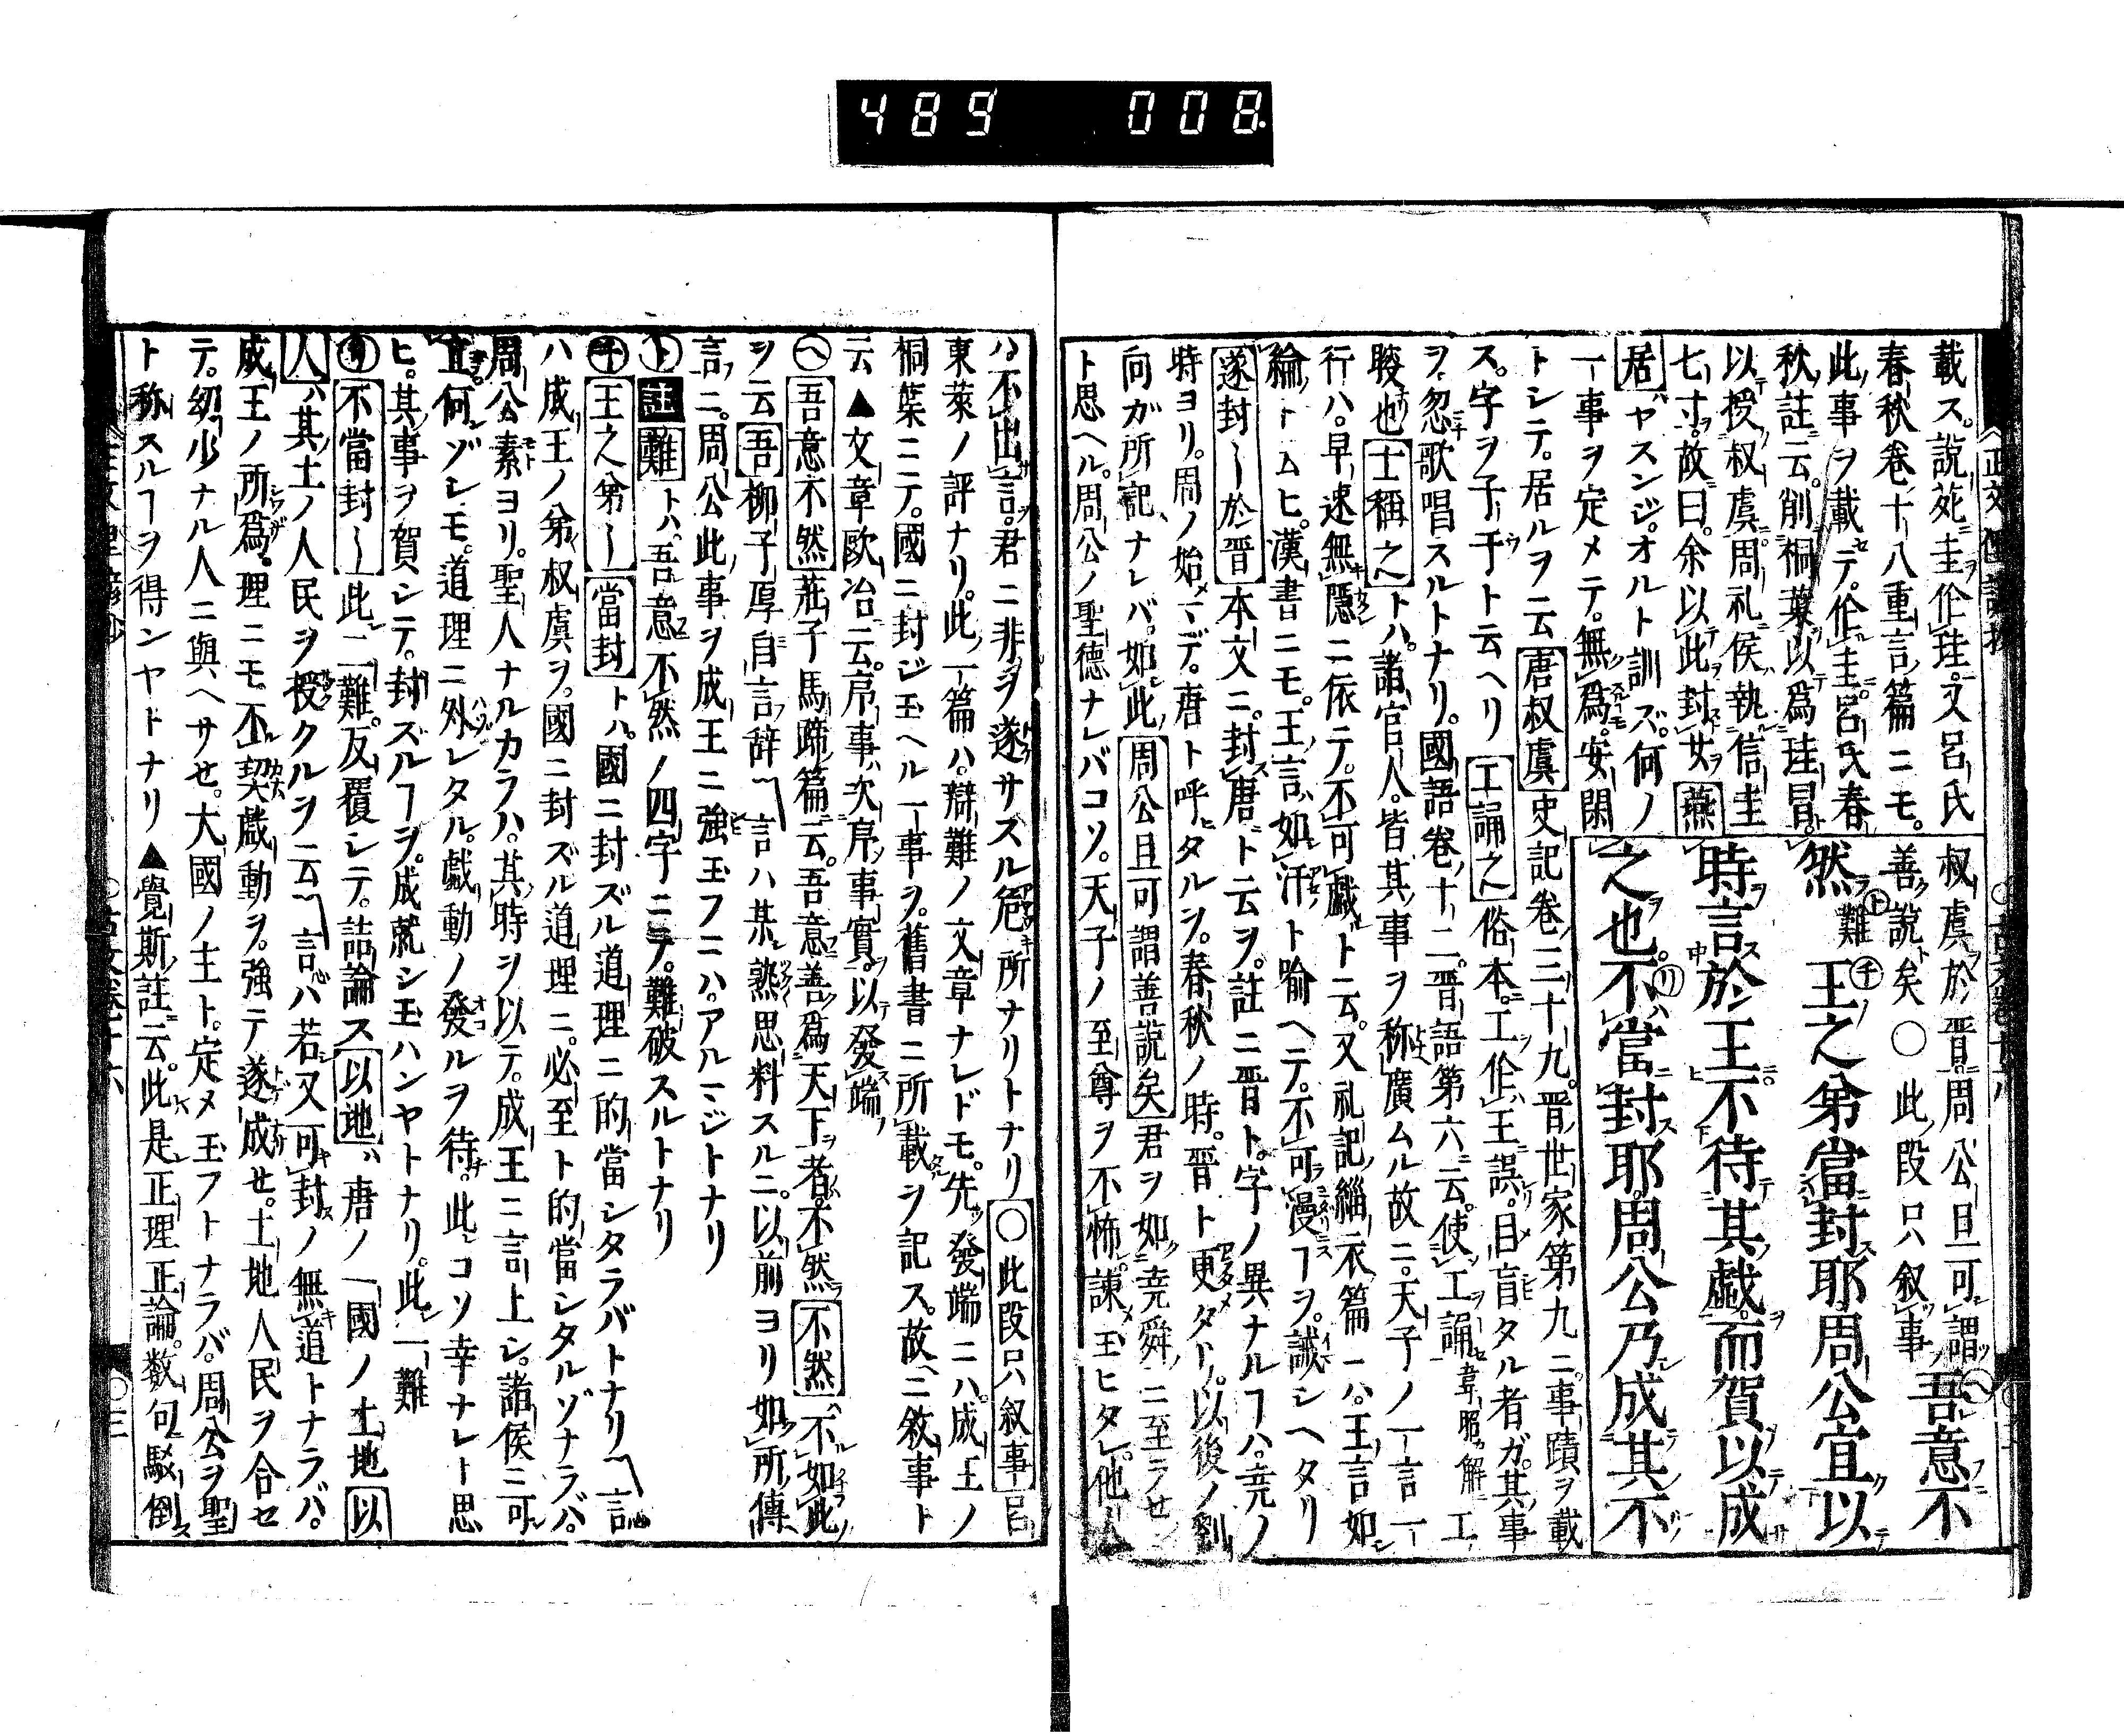 489 008
載ス。說苑ニ圭ヲ作珪。又呂氏
春秋卷十八重言ノ篇ニモ。
此ノ事ヲ載セテ。作圭。呂氏春
秋ノ註ニ云。削桐葉以爲珪冒。
以授叔虞。周礼ニ侯執信圭
七寸。故曰。余以此封女ヲ 燕
居ハヤスンジオルト訓ズ。何ノ
一事ヲ定メテ。無爲。安閑
叔虞於晋。周公旦可謂
善說矣 〇此段只叙事 ㋬吾意不
然 ㋣難 ㋠王之弟當封耶周公宜以
時言於王不待其戯而賀以成
之也。㋷不當封耶周公乃成其不
トシテ。居ルヲ云 唐叔虞 史記卷三十九。晋ノ世家第九ニ事蹟ヲ載
ス。字ヲ子于ト云ヘリ 工誦之 俗本ニ工作王誤。目盲タル者ガ。其事
ヲ忽歌唱スルトナリ。國語卷十二。晋語第六云。使工誦 韋昭解ニ工
瞍也 士稱之 トハ。諸官人。皆其ノ事ヲ称廣ムル故ニ。天子ノ一言一
行ハ。早速無隠ニ依テ。不可戯ト云。又礼記緇衣篇ニハ。王言如
綸トムヒ。漢書ニモ。王言如汗ト喻ヘテ。不可漫ヿヲ。誡シヘタリ
遂封〡於晋 本文ニ。封唐ト云ヲ。註ニ晋ト。字ノ異ナルヿハ。堯ノ
時ヨリ。周ノ始マデ。唐ト呼タルヲ。春秋ノ時。晋ト更タリ。以後ノ劉
向ガ所記ナレバ。如此 周公旦可謂善說矣 君ヲ如堯舜ニ至ラせン
ト思ヘル。周公ノ聖德ナレバコソ。天子ノ至尊ヲ不怖。諫メ玉ヒタレ。他人
ハ不出言。君ニ非ヲ遂サスル危キ所ナリトナリ 〇此段只叙事 呂
東萊ノ評ナリ。此一篇ハ。辯難ノ文章ナレドモ。先ツ發端ニハ。成王ノ
桐葉ニニテ。國ニ封ジ玉ヘル一事ヲ。舊書ニ所載ヲ記ス。故ニ叙事ト
云 ▲文章歐冶ニ云。序事ハ次序事實。以發端
㋬ 吾意不然 莊子馬蹄篇ニ云。吾意善爲天下者。不然 不然ハ不如此
ヲ云 吾ハ柳子厚自言フ辞 言ハ某熟思料スルニ。以前ヨリ如所傳
言ニ。周公此事ヲ成王ニ強玉フニハ。アルマジトナリ
㋣ 註 難 トハ。吾意不然ノ四字ニテ。難破スルトナリ
㋠ 王之弟〡 當封 トハ。國ニ封ズル道理ニ的當シタラバトナリ 言
ハ成王ノ弟叔虞ヲ。國ニ封ズル道理ニ。必至ト的當シタルゾナラバ。
周公素ヨリ。聖人ナルカラハ。其時ヲ以テ。成王ニ言上シ。諸侯ニ可
宜。何ゾシモ。道理ニ外レタル。戯動ノ發ルヲ待。此コソ幸ナレト思
ヒ。其事ヲ賀シテ。封ズルヿヲ。成就シ玉ハンヤトナリ。此一難
㋷ 不當封〡 此二難。反覆シテ。詰論ス 以地ハ 唐ノ一國ノ土地 以
人ハ 其ノ土ノ人民ヲ授クルヲ云 言ハ若又可封ノ無道トナラバ。
成王ノ所爲。理ニモ不契戯動ヲ。強テ遂成せ。土地人民ヲ合せ
テ。幼少ナル人ニ與ヘサせ。大國ノ主ト。定メ玉フトナラバ。周公ヲ聖
ト称スルヿヲ得ンヤトナリ ▲覺斯註ニ云。此レ是正理正論。数句駁倒